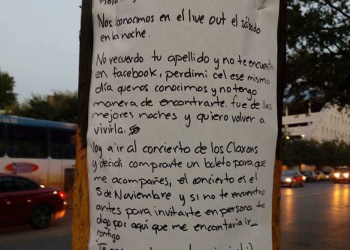 Nos conocimos en el live out el sábado
en la noche.
No recuerdo tu apellido y no te encuentro
en facebook, perdi mi cel ese mismo
día que nos conocimos y no tengo
manera de encontrarte, fue de las
mejores noches y quiero volver a
vivirla.
Voy a ir al concierto de los Claxons
y decidí comprarte un boleto para que
me acompañes, el concierto es el
5 de Noviembre y si no te encuentro
antes para invitarte en persona te
digo por aqui que me encantaria ir
contigo